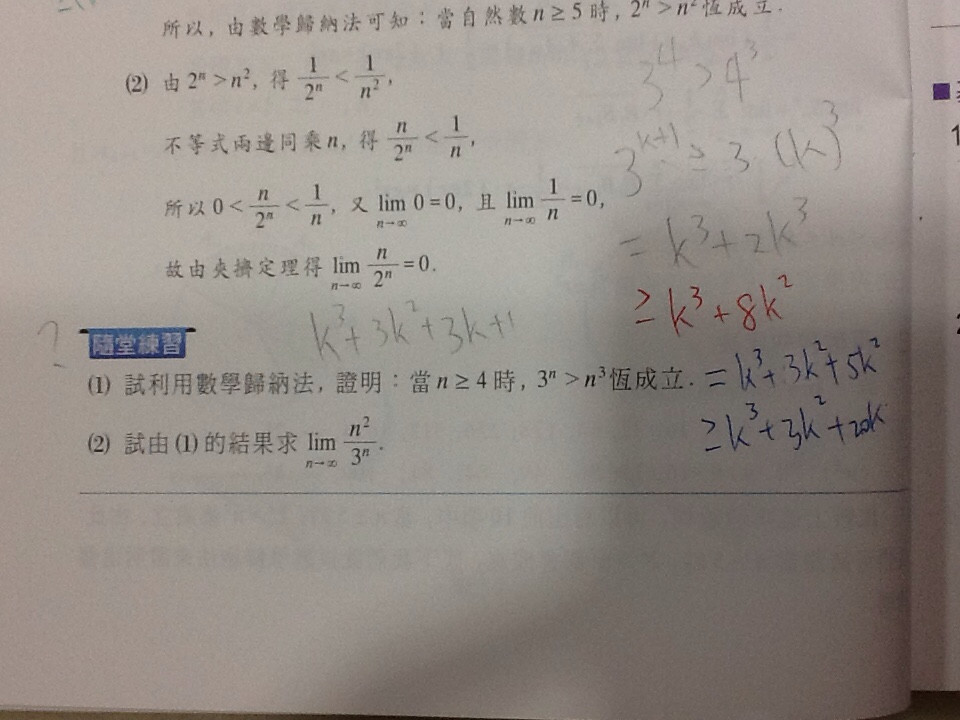 所以, 由數學歸納法可知：當自然數 n ≥ 5 時, 2ⁿ > n² 恆成立.
(2) 由 2ⁿ > n², 得 1/2ⁿ < 1/n²,
3⁴ > 4³
不等式兩邊同乘 n, 得 n/2ⁿ < 1/n,
3^(k+1) > 3·(k)³
所以 0 < n/2ⁿ < 1/n, 又 lim n→∞ 0 = 0, 且 lim n→∞ 1/n = 0,
= k³ + 2k³
故由夾擠定理得 lim n→∞ n/2ⁿ = 0.
≥ k³ + 8k²
k³ + 3k² + 3k + 1
?
隨堂練習
(1) 試利用數學歸納法, 證明：當 n ≥ 4 時, 3ⁿ > n³ 恆成立.
= k³ + 3k² + 5k²
(2) 試由 (1) 的結果求 lim n→∞ n²/3ⁿ.
≥ k³ + 3k² + 20k